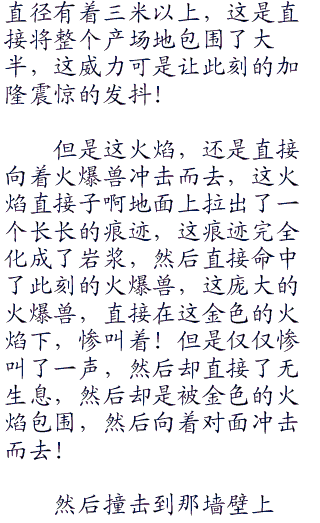 直径有着三米以上，这是直
接将整个产场地包围了大
半，这威力可是让此刻的加
隆震惊的发抖！
但是这火焰，还是直接
向着火爆兽冲击而去，这火
焰直接子啊地面上拉出了一
个长长的痕迹，这痕迹完全
化成了岩浆，然后直接命中
了此刻的火爆兽，这庞大的
火爆兽，直接在这金色的火
焰下，惨叫着！但是仅仅惨
叫了一声，然后却直接了无
生息，然后却是被金色的火
焰包围，然后向着对面冲击
而去！
然后撞击到那墙壁上